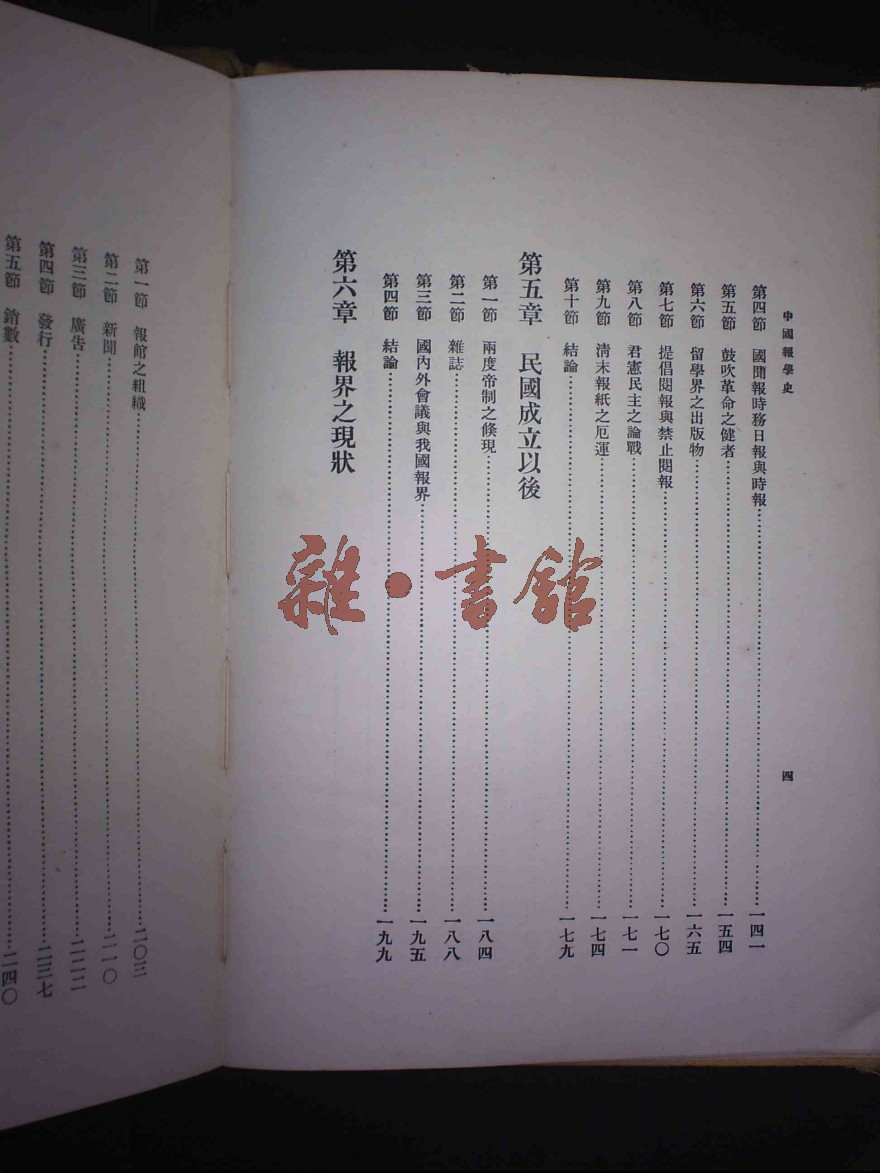 中國報學史
四
第四節 國聞報時務日報與時報……一四一
第五節 鼓吹革命之健者……一五四
第六節 留學界之出版物……一六五
第七節 提倡閱報與禁止閱報……一七〇
第八節 君憲民主之論戰……一七一
第九節 清末報紙之厄運……一七四
第十節 結論……一七九
第五章 民國成立以後
第一節 兩度帝制之條現……一八四
第二節 雜誌……一八八
第三節 國內外會議與我國報界……一九五
第四節 結論……一九九
第六章 報界之現狀
第一節 報館之組織……二〇三
第二節 新聞……二一〇
第三節 廣告……二二二
第四節 發行……二三七
第五節 銷數……二四〇
雜·書館